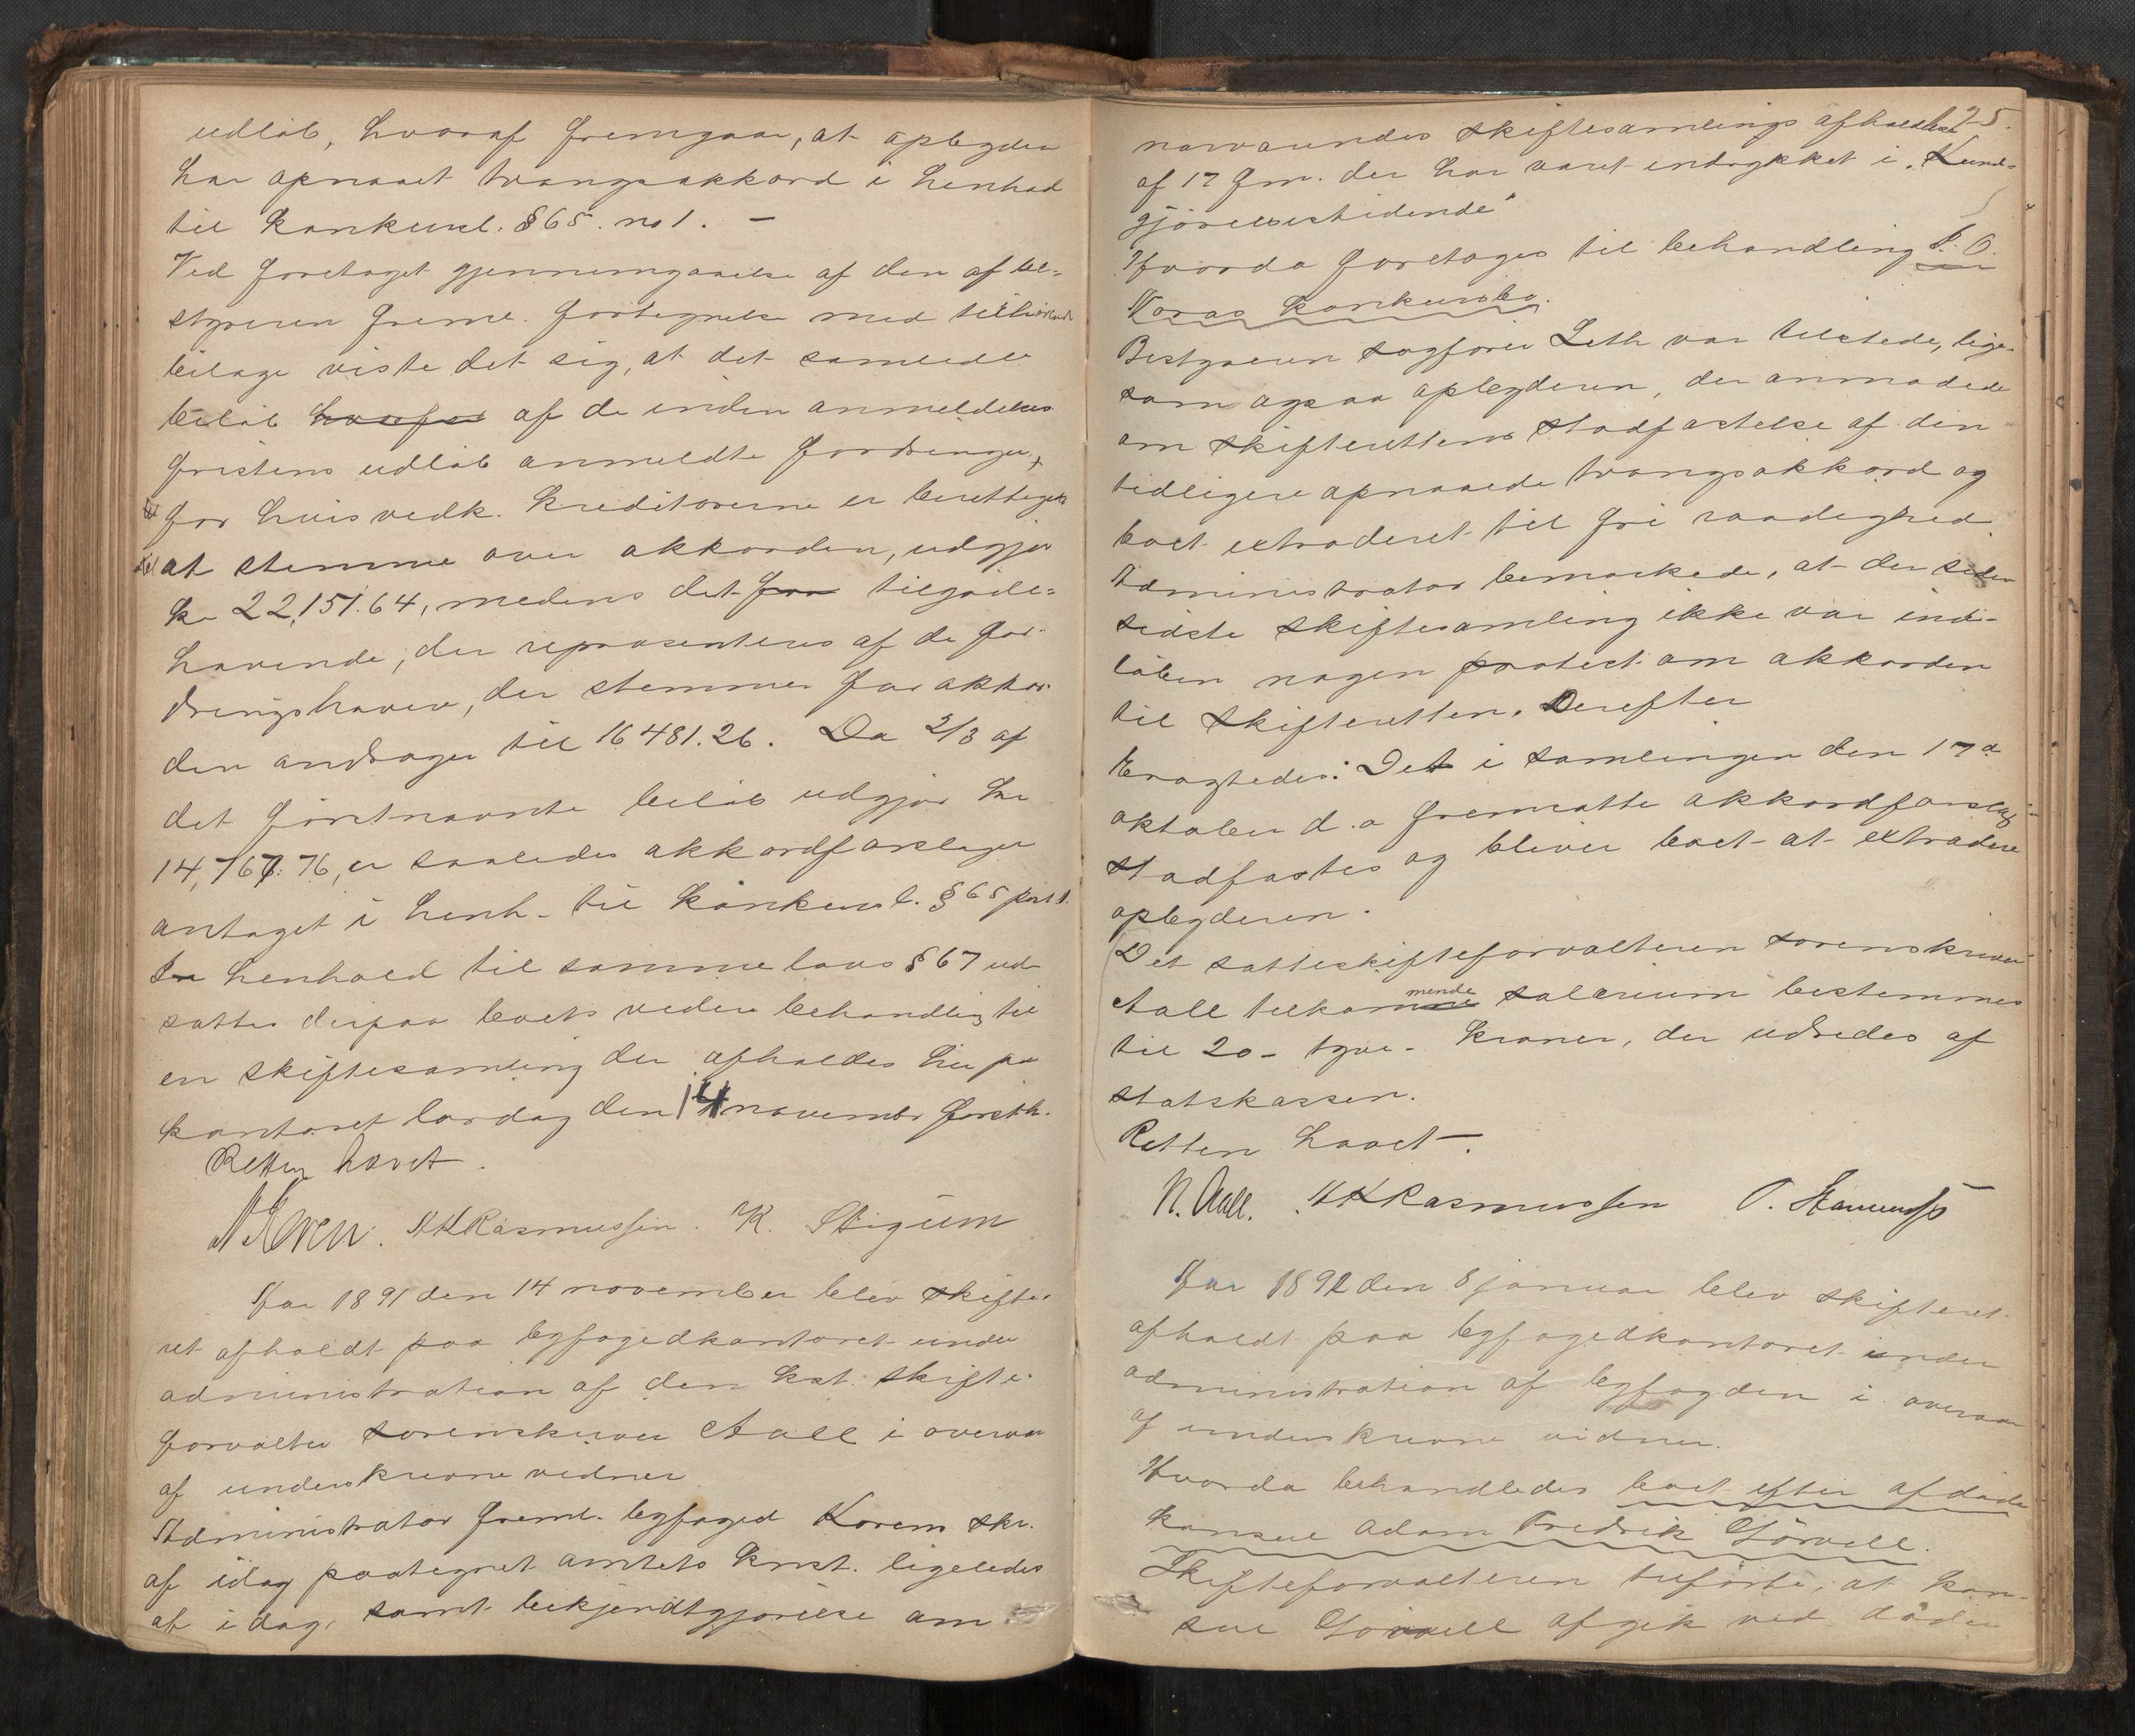 udløb, hvoraf fremgaar, at opbyden
har opnaaet tvangsakkord i henhod
til konkursl. §65. no 1. –
Ved foretaget gjennemgaaelse af den af be-
styreren freml. fortegnelse med tilhørende
bilage viste det sig, at det samlede
beløb af de inden anmeldelses
fristens udløb anmeldte fordringer,
for hvis vedk. kreditorerne er berettiget
til at stemme over akkorden, udgjør
kr 22,151.64, medens det tilgode-
havende, der repræsenteres af de for-
dringshavere, der stemmer for akkor-
den andrager til 16 481.26. Da 2/3 af
det førstnævnte beløb udgjør kr
14,767.76, er saaledes akkordforslaget
antaget i henh. til konkursl. §65 post 1.
I henhold til samme lovs §67 ud-
sattes derpaa boets videre behandling til
en skiftesamling der afholdes her paa
kontoret lørdag den 14 novembr førsth.
Retten hævet.
NKRasmussen. K. Stigum
Aar 1891 den 14 november blev skifte-
ret afholdt paa byfogedkontoret under
administration af den kst. skifte-
forvalter sorenskriver Aall i overvær
af underskrevne vidner
Administrator freml. byfoged Korens skr.
af idag paategnet amtets knst. ligeledes
af idag, samt bekjendtgjørelse om
25.
nærværendes skiftesamlings afholdelse
af 17 f.m. der har været indrykket i „Kund-
gjørelsestidende"
Hvorda foretoges til behandling P. O.
Moraos konkursbo.
Bestyreren sagfører Leth var tilstede, lige-
som ogsaa opbyderen, der anmodede
om skifterettens stadfæstelse af den
tidligere opnaaede tvangsakkord og
boet extraderet til fri raadighed.
Administrator bemærkede, at der siden
sidste skiftesamling ikke var ind-
løben nogen protest om akkorden
til skifteretten. Derefter
Eragtedes: Det i samlingen den 17de
oktober d.a fremsatte akkordforslag
stadfæstes og bliver boet at extradere
opbyderen.
Det satteskifteforvalteren sorenskriver
Aall tilkommende salærium bestemmes
til 20 – tyve – kroner, der udredes af
statskassen.
Retten hævet.
N. Aall. NKRasmussen
Aar 1892 den 8 januar blev skifteret
afholdt paa byfogedkontoret under
administration af byfogden i overvær
af underskrevne vidner.
Hvorda behandledes boet efter afdøde
konsul Adam Fredrik Gørvell.
Skifteforvalteren tilførte, at kon-
sul Gørvell afgik ved døden